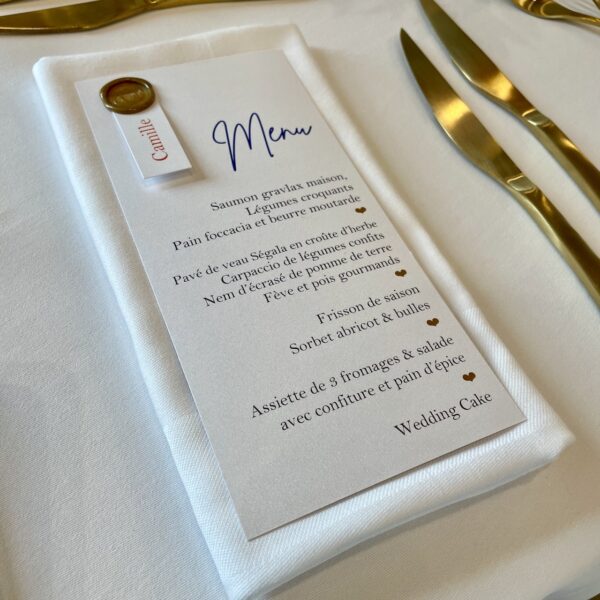 Camille
Menu
Saumon gravlax maison,
Légumes croquants
Pain foccacia et beurre moutarde
Pavé de veau Ségala en croûte d'herbe
Carpaccio de légumes confits
Nem d'écrasé de pomme de terre
Fève et pois gourmands
Frisson de saison
Sorbet abricot & bulles
Assiette de 3 fromages & salade
avec confiture et pain d'épice
Wedding Cake